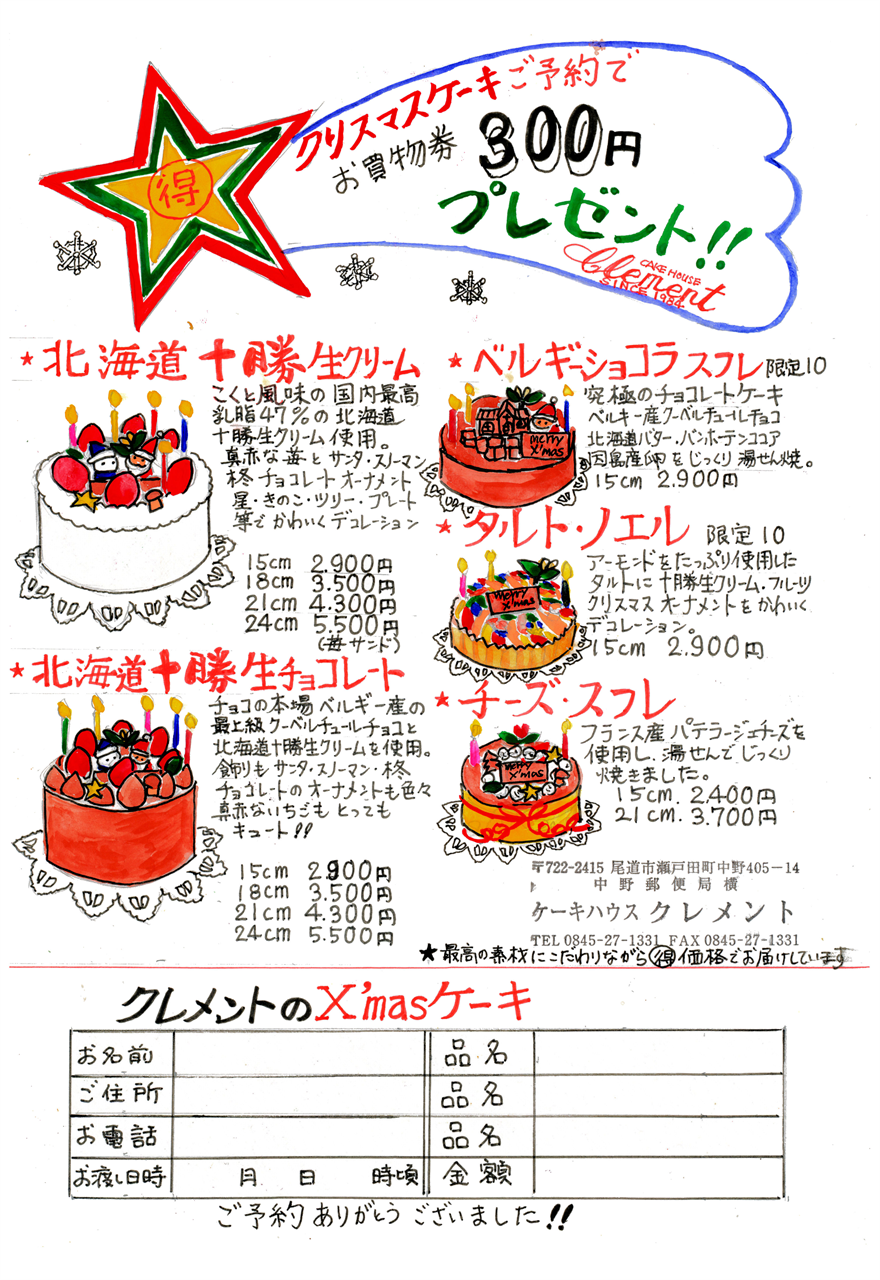 クリスマスケーキご予約で
お買物券 300円
プレゼント!!
得
CAKE HOUSE
Clement
SINCE 1984
★北海道十勝生クリーム
こくと風味の国内最高
乳脂47%の北海道
十勝生クリーム使用。
真赤な苺とサンタ・スノーマン
柊チョコレートオーナメント
星・きのこ・ツリー・プレート
等でかわいくデコレーション
15cm 2.900円
18cm 3.500円
21cm 4.300円
24cm 5.500円
(苺サンド)
★北海道十勝生チョコレート
チョコの本場ベルギー産の
最上級クーベルチュールチョコと
北海道十勝生クリームを使用。
飾りもサンタ・スノーマン・柊
チョコレートのオーナメントも色々
真赤ないちごもとっても
キュート!!
15cm 2.900円
18cm 3.500円
21cm 4.300円
24cm 5.500円
★ベルギーショコラスフレ 限定10
究極のチョコレートケーキ
ベルキー産クーベルチュールチョコ
北海道バター・バンホーテンココア
因島産卵をじっくり湯せん焼。
15cm 2.900円
merry
X'mas
★タルト・ノエル 限定10
アーモンドをたっぷり使用した
タルトに十勝生クリーム・フルーツ
クリスマスオーナメントをかわいく
デコレーション。
15cm 2.900円
merry
X'mas
★チーズ・スフレ
フランス産パテラージュチーズを
使用し、湯せんでじっくり
焼きました。
15cm. 2.400円
21cm. 3.700円
merry
X'mas
〒722-2415 尾道市瀬戸田町中野405-14
中野郵便局横
ケーキハウス クレメント
TEL 0845-27-1331 FAX 0845-27-1331
★最高の素材にこだわりながら得価格でお届けしています
クレメントのX'masケーキ
お名前 品名
ご住所 品名
お電話 品名
お渡し日時 月 日 時頃 金額
ご予約ありがとうございました!!